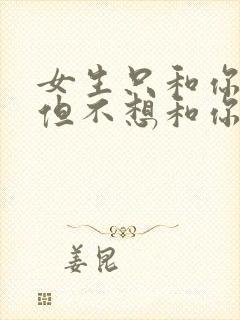 女生只和你
但不想和你
姜昆